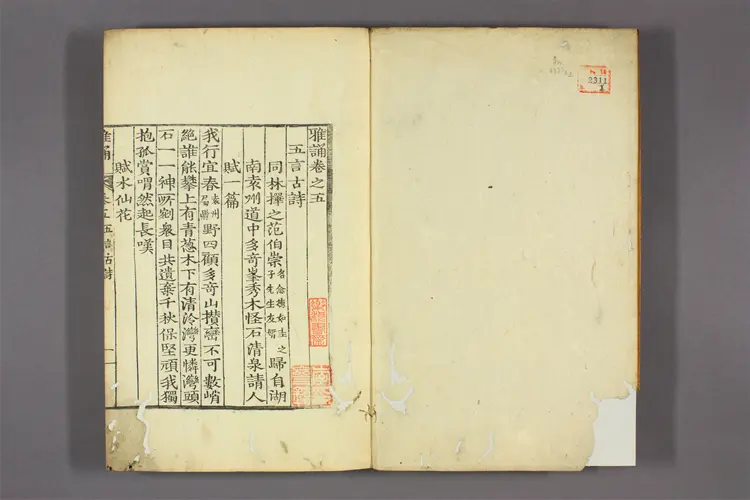 雅誦卷之五
五言古詩
同林擇之范伯崇名念德如圭之子先生友壻歸自湖
南袁州道中多奇峯秀木怪石清泉請人
賦一篇
我行宜春袁州屬縣野四顧多奇山攢巒不可數峭
絶誰能攀上有青葱木下有清泠灣更憐灣頭
石一一神所剜衆目共遺棄千秋保堅頑我獨
抱孤賞喟然起長嘆
賦水仙花
雅誦 五 五言古詩
2311
1